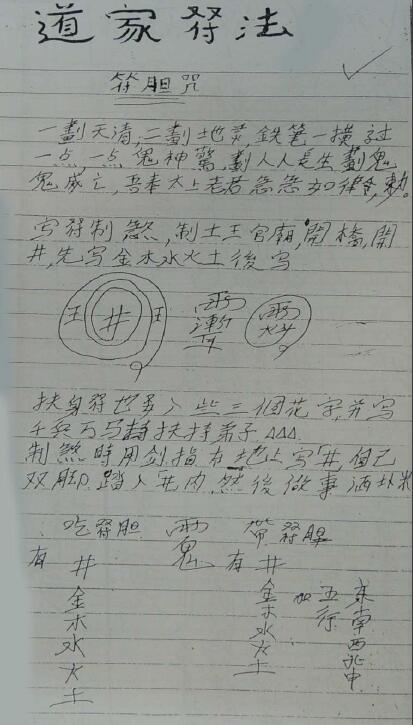 道家符法
符胆咒
一劃天清,二劃地灵,鉄筆一橫过
一点一点鬼神驚,劃人人長生劃鬼
鬼威亡,吾奉太上老君急急如律令,勅。
写符制煞,制土王宫廟,開橋,開
井,先写金木水火土後写
王 井 王
扶身符也要入些三個花字,并写
千兵万马 扶持弟子△△△
制煞時用剑指在地上写「井,自己
双脚踏入「井内,然後做事洒圤米
吃符胆 帶符胆
有井 有井
金木水火土 金木水火土 加五行 東南西北中